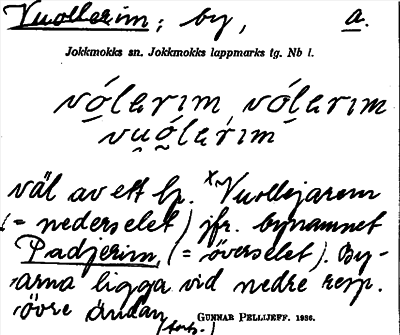 Vuollerim; by, a.
Jokkmokks sn. Jokkmokks lappmarks tg. Nb l.
vólarım vólarım
vuólarım
väl av ett lp. ˣVuollejarem
(= nederselet) jfr. bynamnet
Padjerim, (= överselet). By-
arna ligga vid nedre resp.
övre ändan
GUNNAR PELLIJEFF. 1936.